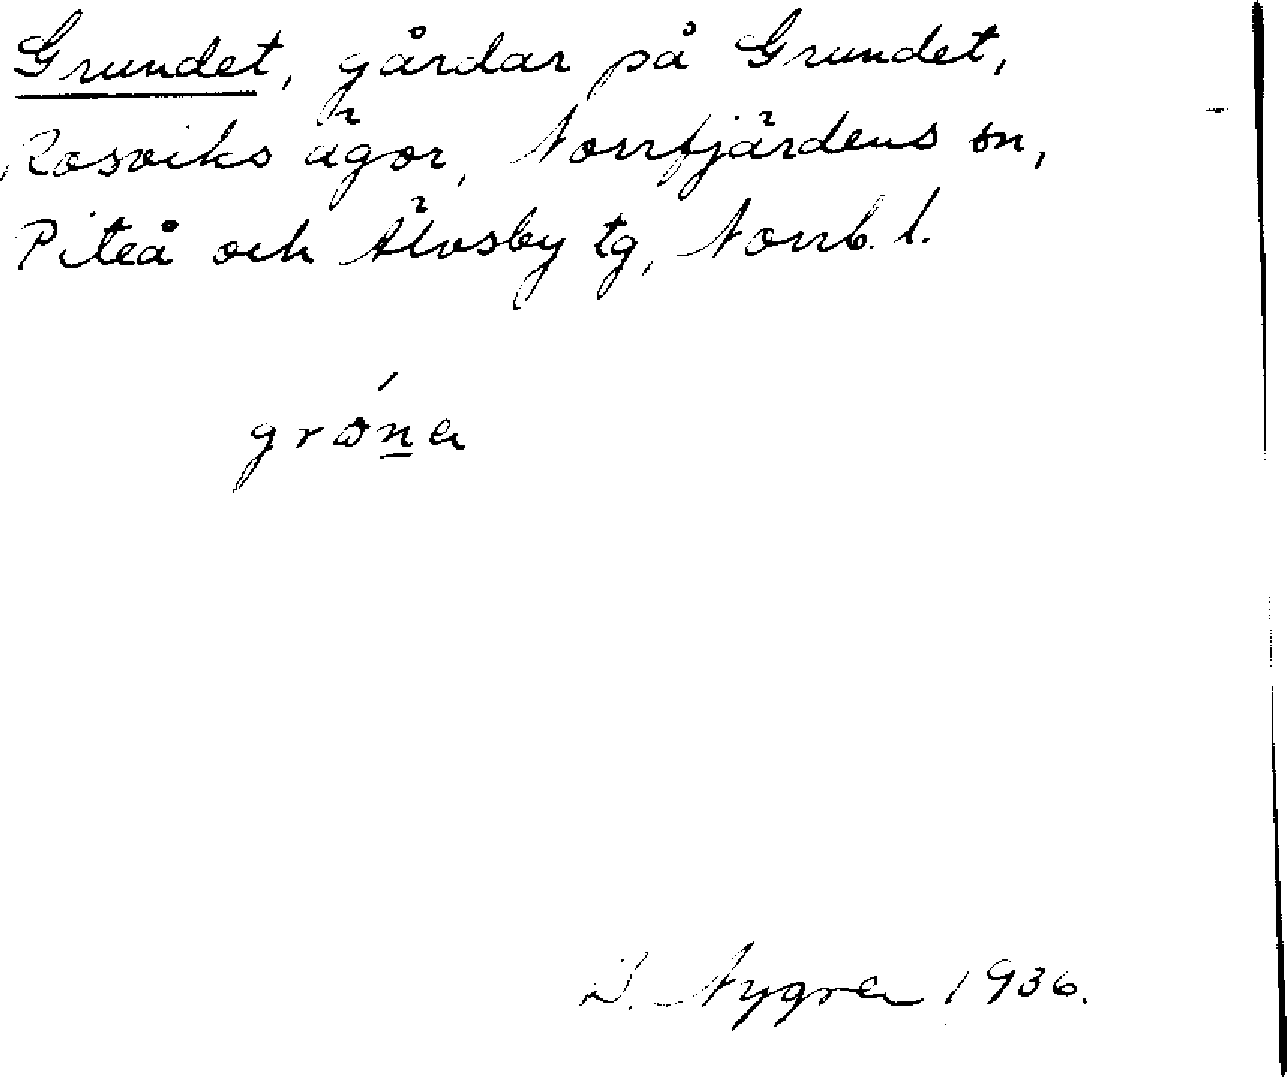 Grundet, gårdar på Grundet,
Rosviks ägor, Norrfjärdens sn,
Piteå och Älvsby tg, Norrb. l.
gróna
D. Nygren 1936.